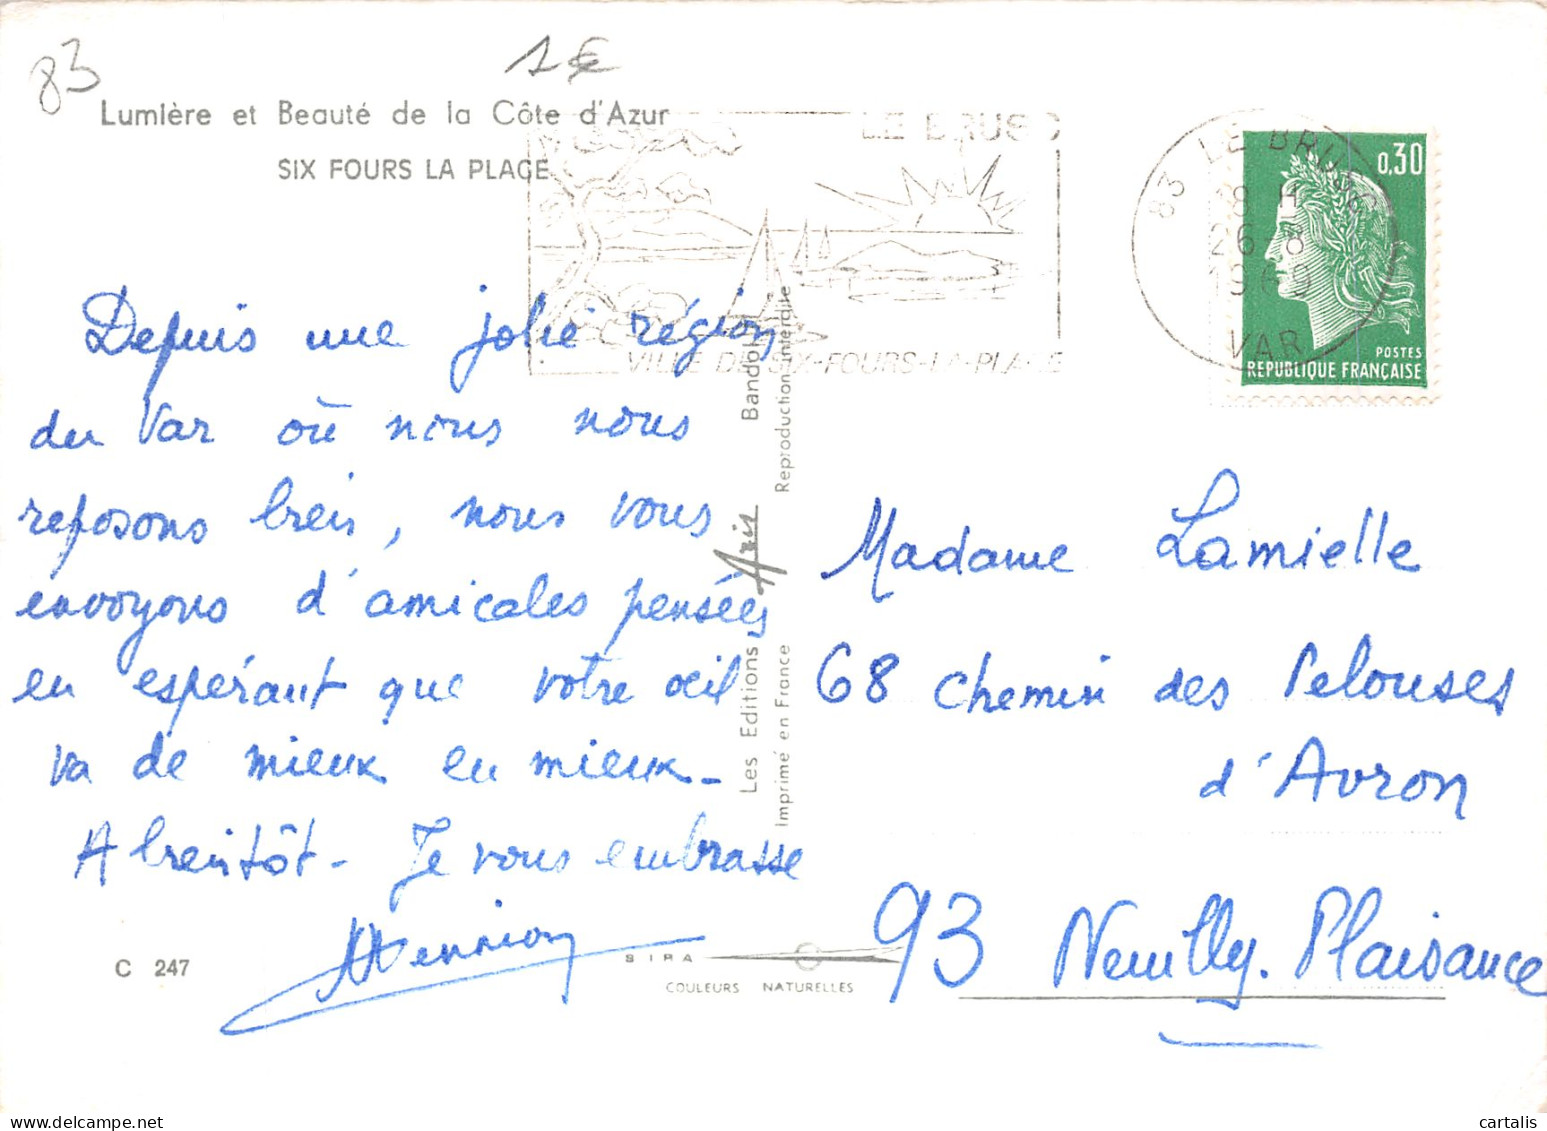 83
1€
Lumière et Beauté de la Côte d'Azur
SIX FOURS LA PLAGE
LE BRUSC
VILLE DE SIX-FOURS-LA-PLAGE
83 LE BRUSC
18 H
26 - 8
1969
VAR
0,30
POSTES
REPUBLIQUE FRANÇAISE
Depuis une jolie région
du Var où nous nous
reposons bien, nous vous
envoyons d'amicales pensées
en espérant que votre oeil
va de mieux en mieux -
A bientôt - Je vous embrasse
C 247
Les Editions Aris Bandol
Imprimé en France Reproduction Interdite
SIRA
COULEURS NATURELLES
Madame Lamielle
68 chemin des Pelouses
d'Avron
93 Neuilly. Plaisance
www.delcampe.net
cartalis